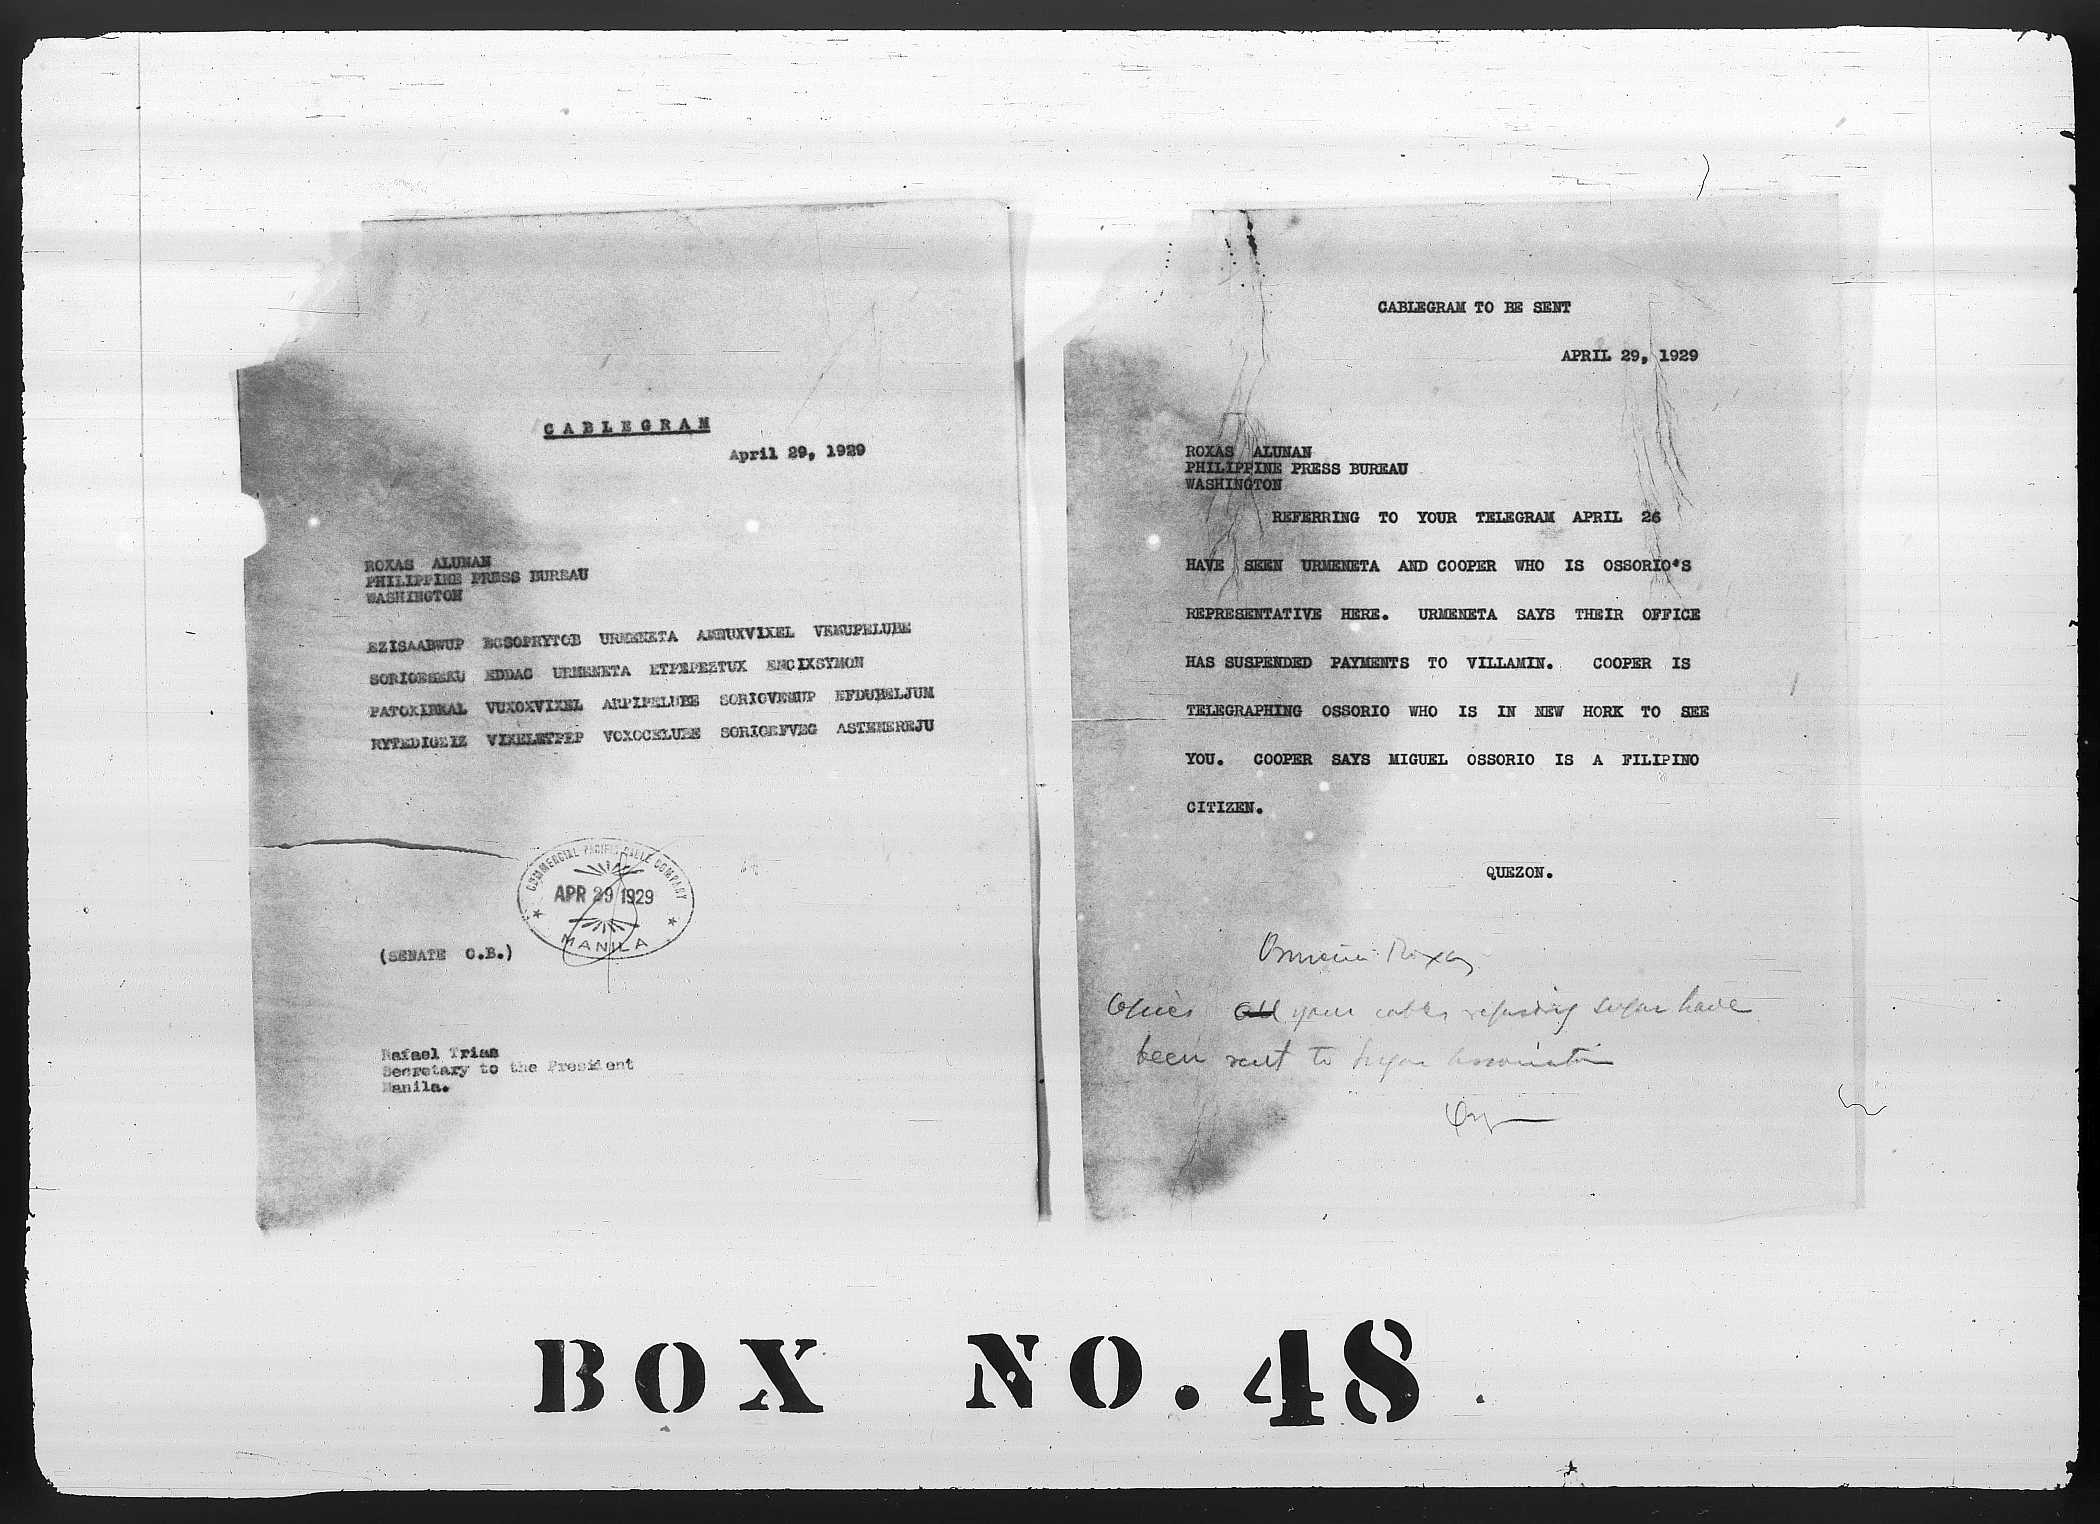 CABLEGRAM
April 29, 1929
ROXAS ALUNAN
PHILIPPINE PRESS BUREAU
WASHINGTON
EZISAABWUP BOSOPRYTOB URMENETA AMNUXVIXEL VEMUPELUBE
SORIOESEKU EDDAC URMENETA ETPEPEZTUX EMCIXSYMON
PATOXIBKAL VUXOXVIXEL ARPIPELUBE SORIOVEMUP EFDUHELJUM
RYTEDIGEIZ VIXELETPEP VOXOCELUBE SORIOEFVEG ASTEMEREJU
COMMERCIAL PACIFIC CABLE COMPANY
APR 29 1929
MANILA
(SENATE C.B.)
Rafael Trias
Secretary to the President
Manila.
CABLEGRAM TO BE SENT
APRIL 29, 1929
ROXAS ALUNAN
PHILIPPINE PRESS BUREAU
WASHINGTON
REFERRING TO YOUR TELEGRAM APRIL 26
HAVE SEEN URMENETA AND COOPER WHO IS OSSORIO'S
REPRESENTATIVE HERE. URMENETA SAYS THEIR OFFICE
HAS SUSPENDED PAYMENTS TO VILLAMIN. COOPER IS
TELEGRAPHING OSSORIO WHO IS IN NEW HORK TO SEE
YOU. COOPER SAYS MIGUEL OSSORIO IS A FILIPINO
CITIZEN.
QUEZON.
Roxas
Copies all your cables regarding sugar have
been sent to sugar association
BOX NO. 48